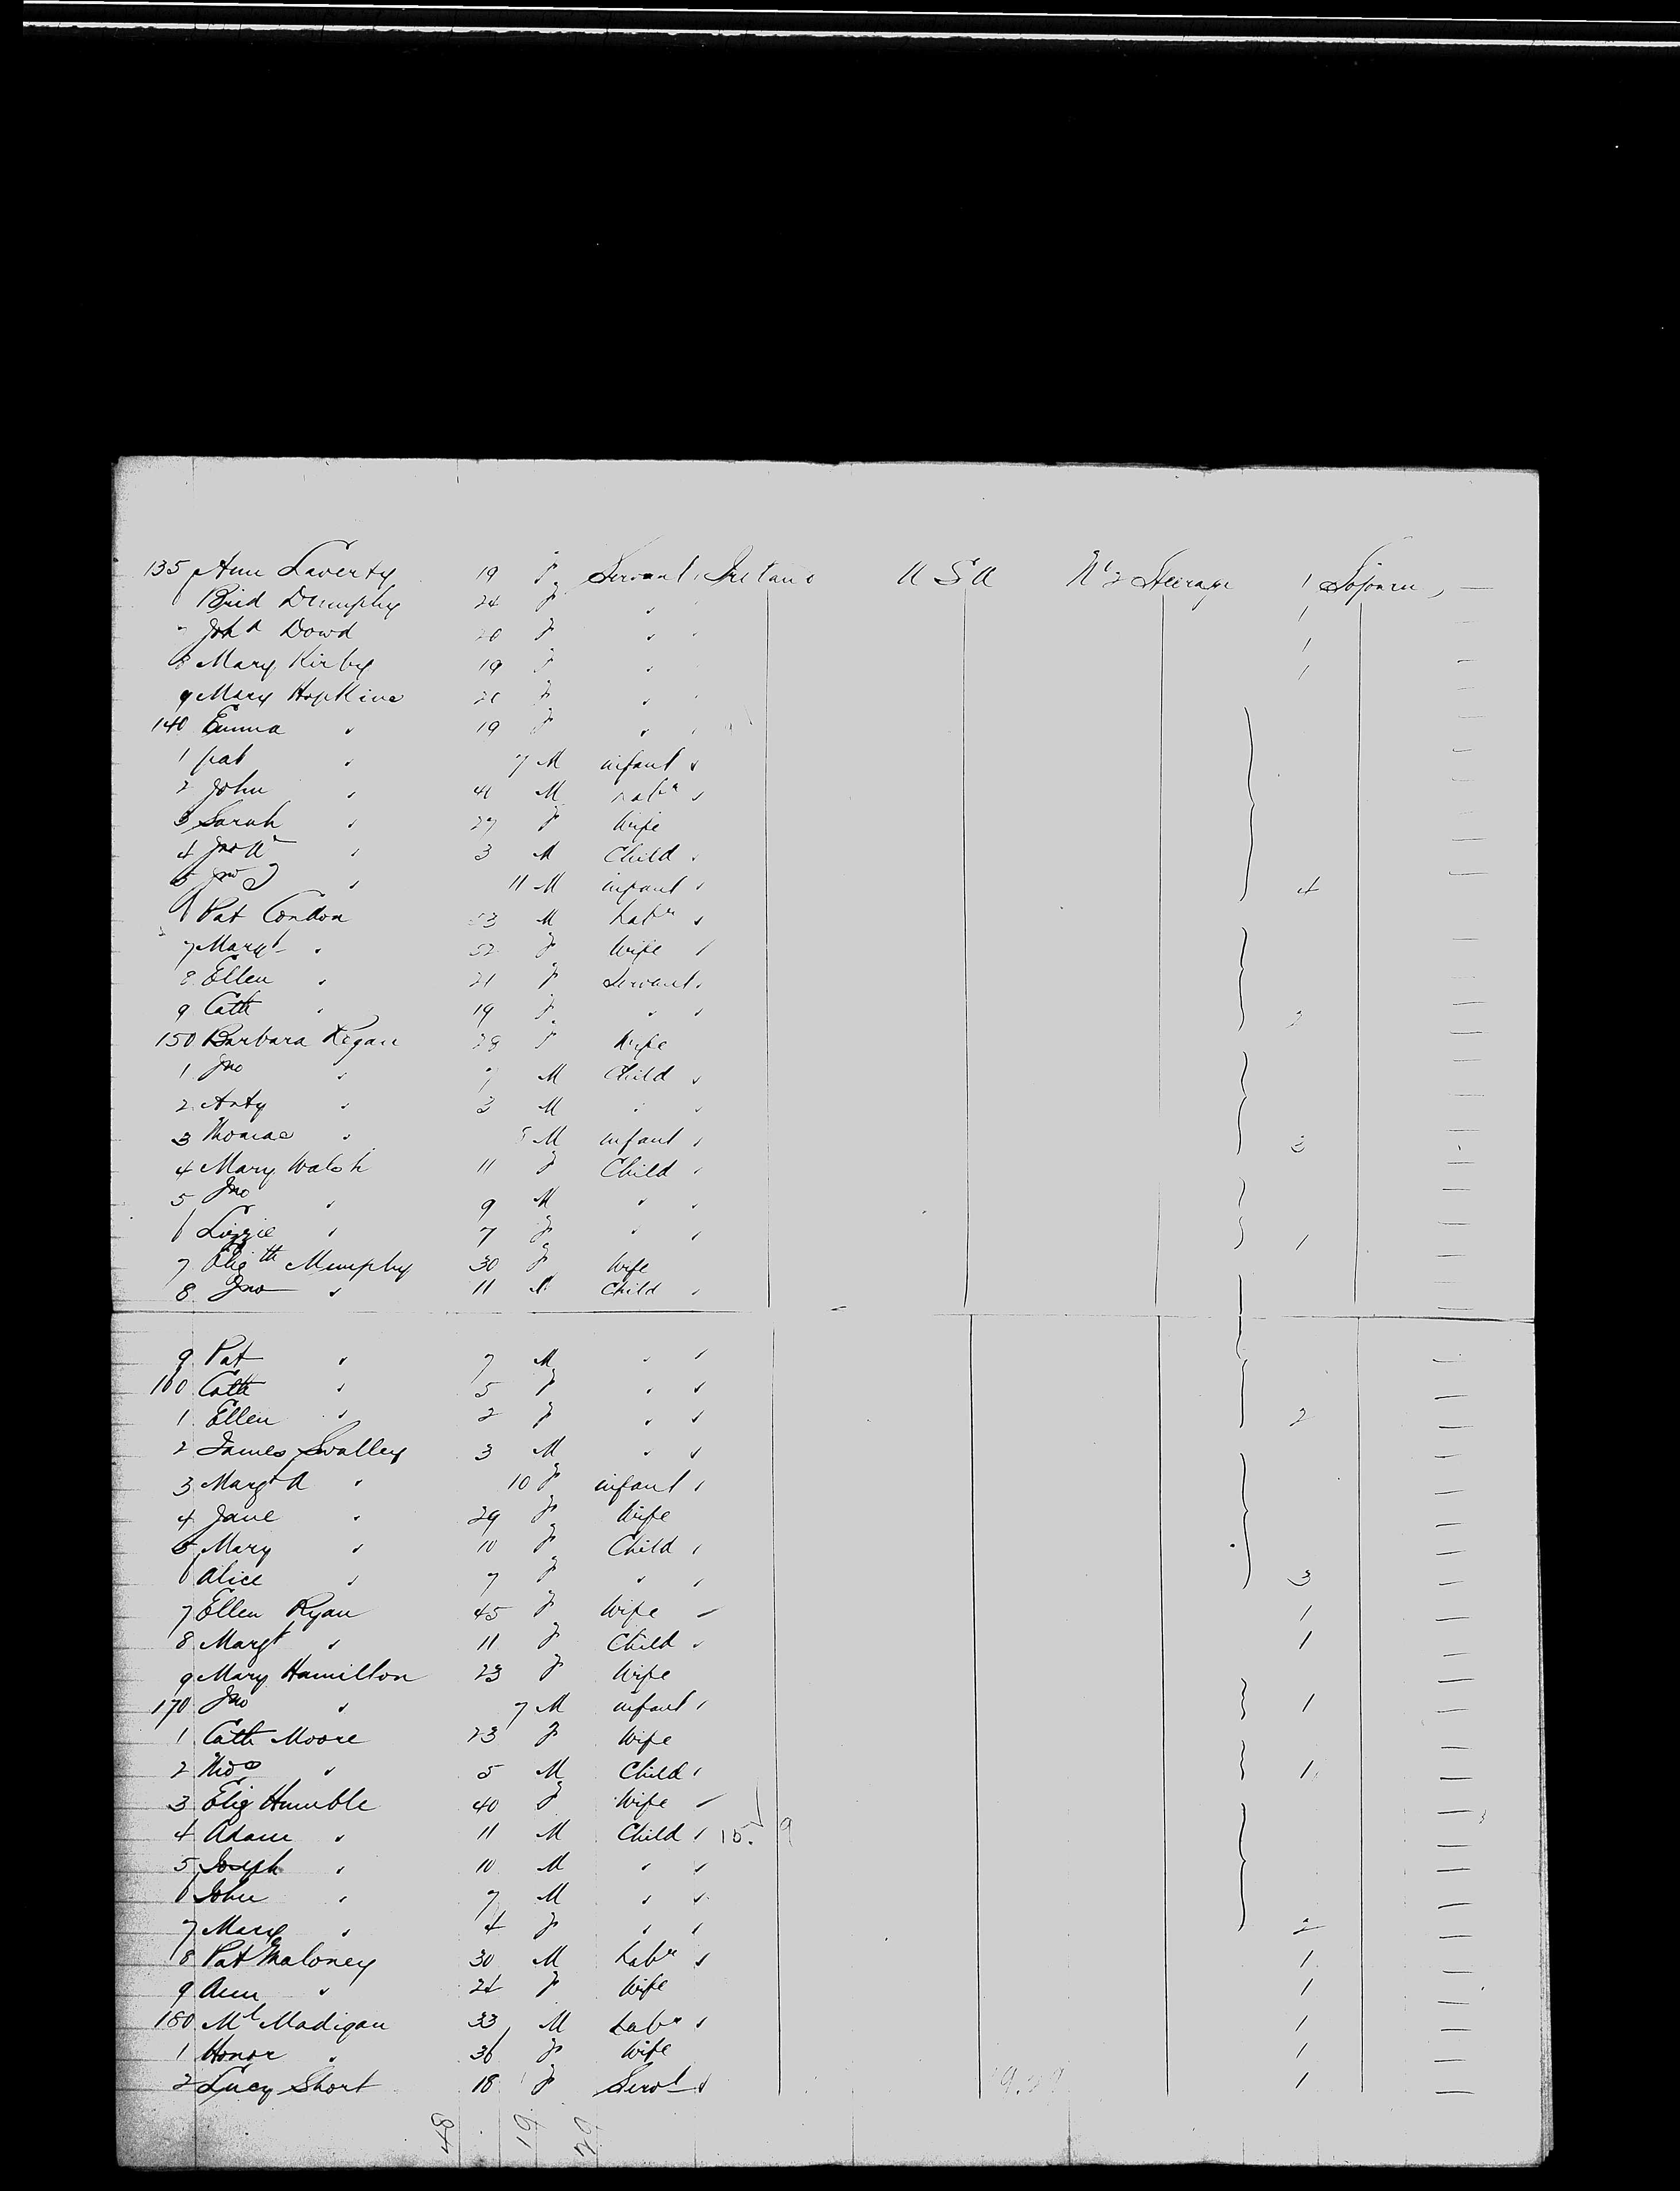 135 Ann Laverty 19 F Servant Ireland U S A No 2 Steerage 1 Sojourn, —
6 Brid Dunphy 24 F " " 1 —
7 Joh A Dowd 20 F " " 1 —
8 Mary Kirby 19 F " " 1 —
9 Mary Hopkins F " " —
140 Emma " 19 F " " —
1 Pat " 7 M infant " —
2 John " 41 M Labr " —
3 Sarah " 27 F Wife —
4 Jno W " 3 M Child " —
5 Jno J " 11 M infant " 4 —
6 Pat Condon 53 M Labr " —
7 Margt " 52 F Wife " —
8 Ellen " 21 F Servant " —
9 Cath " 19 F " " 2 —
150 Barbara Regan 28 F Wife —
1 Jno " 7 M Child " —
2 Anty " 3 M " " —
3 Thomas " M infant " 3
4 Mary Walsh 11 F Child " —
5 Jno " 9 M " " —
6 Lizzie " 7 F " " 1 —
7 Elizth Murphy 30 F Wife —
8 Jno " 11 M Child " —
9 Pat " 7 M " " —
160 Cath " 5 F " " —
1 Ellen " 2 F " " 2 —
2 James Swalley 3 M " " —
3 Margt A " 10 F infant " —
4 Jane " 29 F Wife —
5 Mary " 10 F Child " —
6 Alice " 7 F " " 3 —
7 Ellen Ryan 45 F Wife " 1 —
8 Margt " 11 F Child " 1 —
9 Mary Hamilton 23 F Wife —
170 Jno " 7 M infant " 1 —
1 Cath Moore 23 F Wife —
2 Thos " 5 M Child " 1 —
3 Eliz Humble 40 F Wife " —
4 Adam " 11 M Child " 15. 9 —
5 Joseph " 10 M " " —
6 John " 7 M " " —
7 Mary " 4 F " " 2 —
8 Pat Maloney 30 M Labr " 1 —
9 Ann " 24 F Wife 1 —
180 Ml Madigan 33 M Labr " 1 —
1 Honor " 36 F Wife 1 —
2 Lucy Short 18 F Servt " 1 —
48 19 29